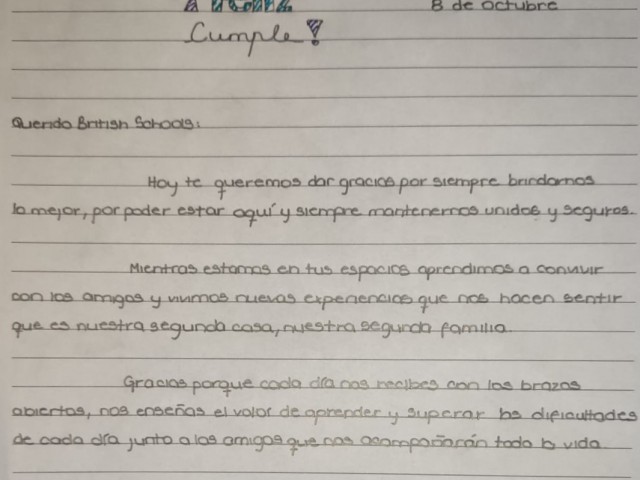 8 de octubre
Cumple!
Querido British Schools:
Hoy te queremos dar gracias por siempre brindarnos
lo mejor, por poder estar aquí y siempre mantenernos unidos y seguros.
Mientras estamos en tus espacios aprendimos a convivir
con los amigos y vivimos nuevas experiencias que nos hacen sentir
que es nuestra segunda casa, nuestra segunda familia.
Gracias porque cada día nos recibes con los brazos
abiertos, nos enseñas el valor de aprender y superar las dificultades
de cada día junto a los amigos que nos acompañarán toda la vida